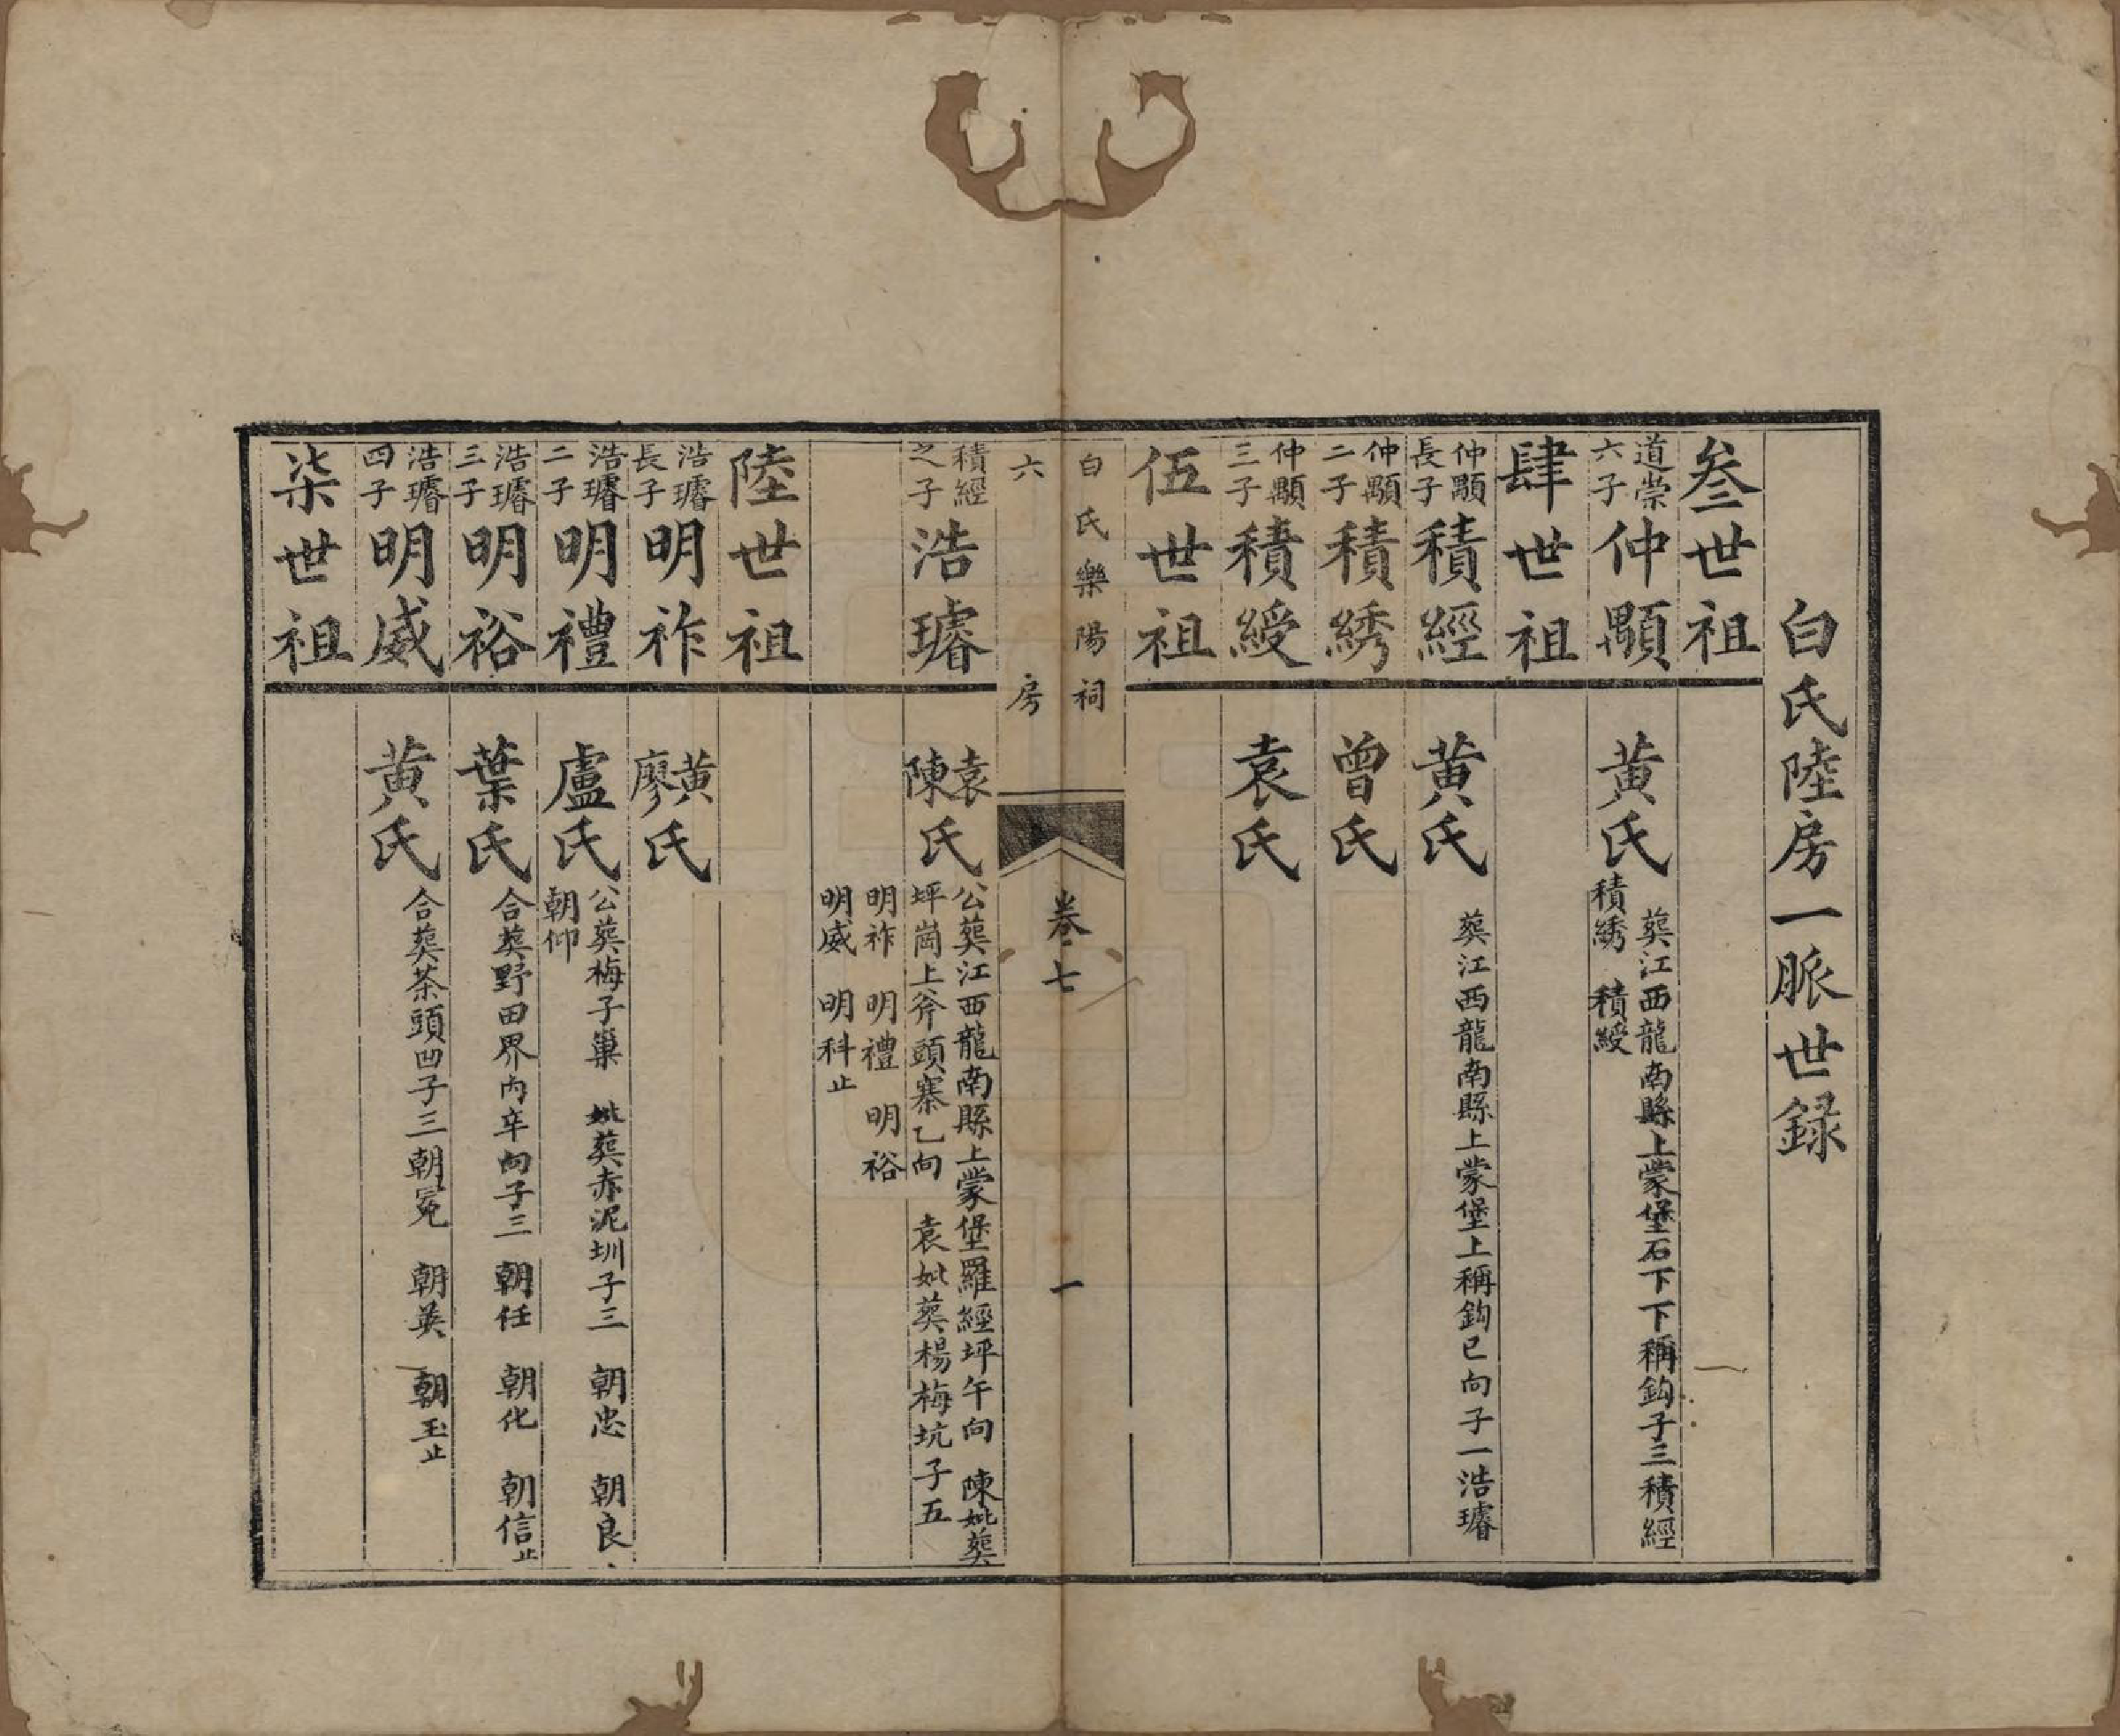 白氏陸房一脈世録
叁世祖
道崇
六子
仲顯
黄氏
葬江西龍南縣上蒙堡石下下稱鈎子三積經
積綉 積綬
肆世祖
仲顯
長子
積經
黄氏
葬江西龍南縣上蒙堡上稱鈎已向子一浩璿
仲顯
二子
積綉
曾氏
仲顯
三子
積綬
袁氏
伍世祖
白氏樂陽祠
六房
卷七
一
積經
之子
浩璿
袁
陳氏
公葬江西龍南縣上蒙堡羅經坪午向 陳妣葬
坪崗上斧頭寨乙向 袁妣葬楊梅坑子五
明祚 明禮 明裕
明威 明科止
陸世祖
浩璿
長子
明祚
黄
廖氏
浩璿
二子
明禮
盧氏
公葬梅子巢 妣葬赤泥圳子三 朝忠 朝良
朝仰
浩璿
三子
明裕
葉氏
合葬野田界内辛向子三 朝任 朝化 朝信止
浩璿
四子
明威
黄氏
合葬茶頭凹子三朝冕 朝英 朝玉止
柒世祖